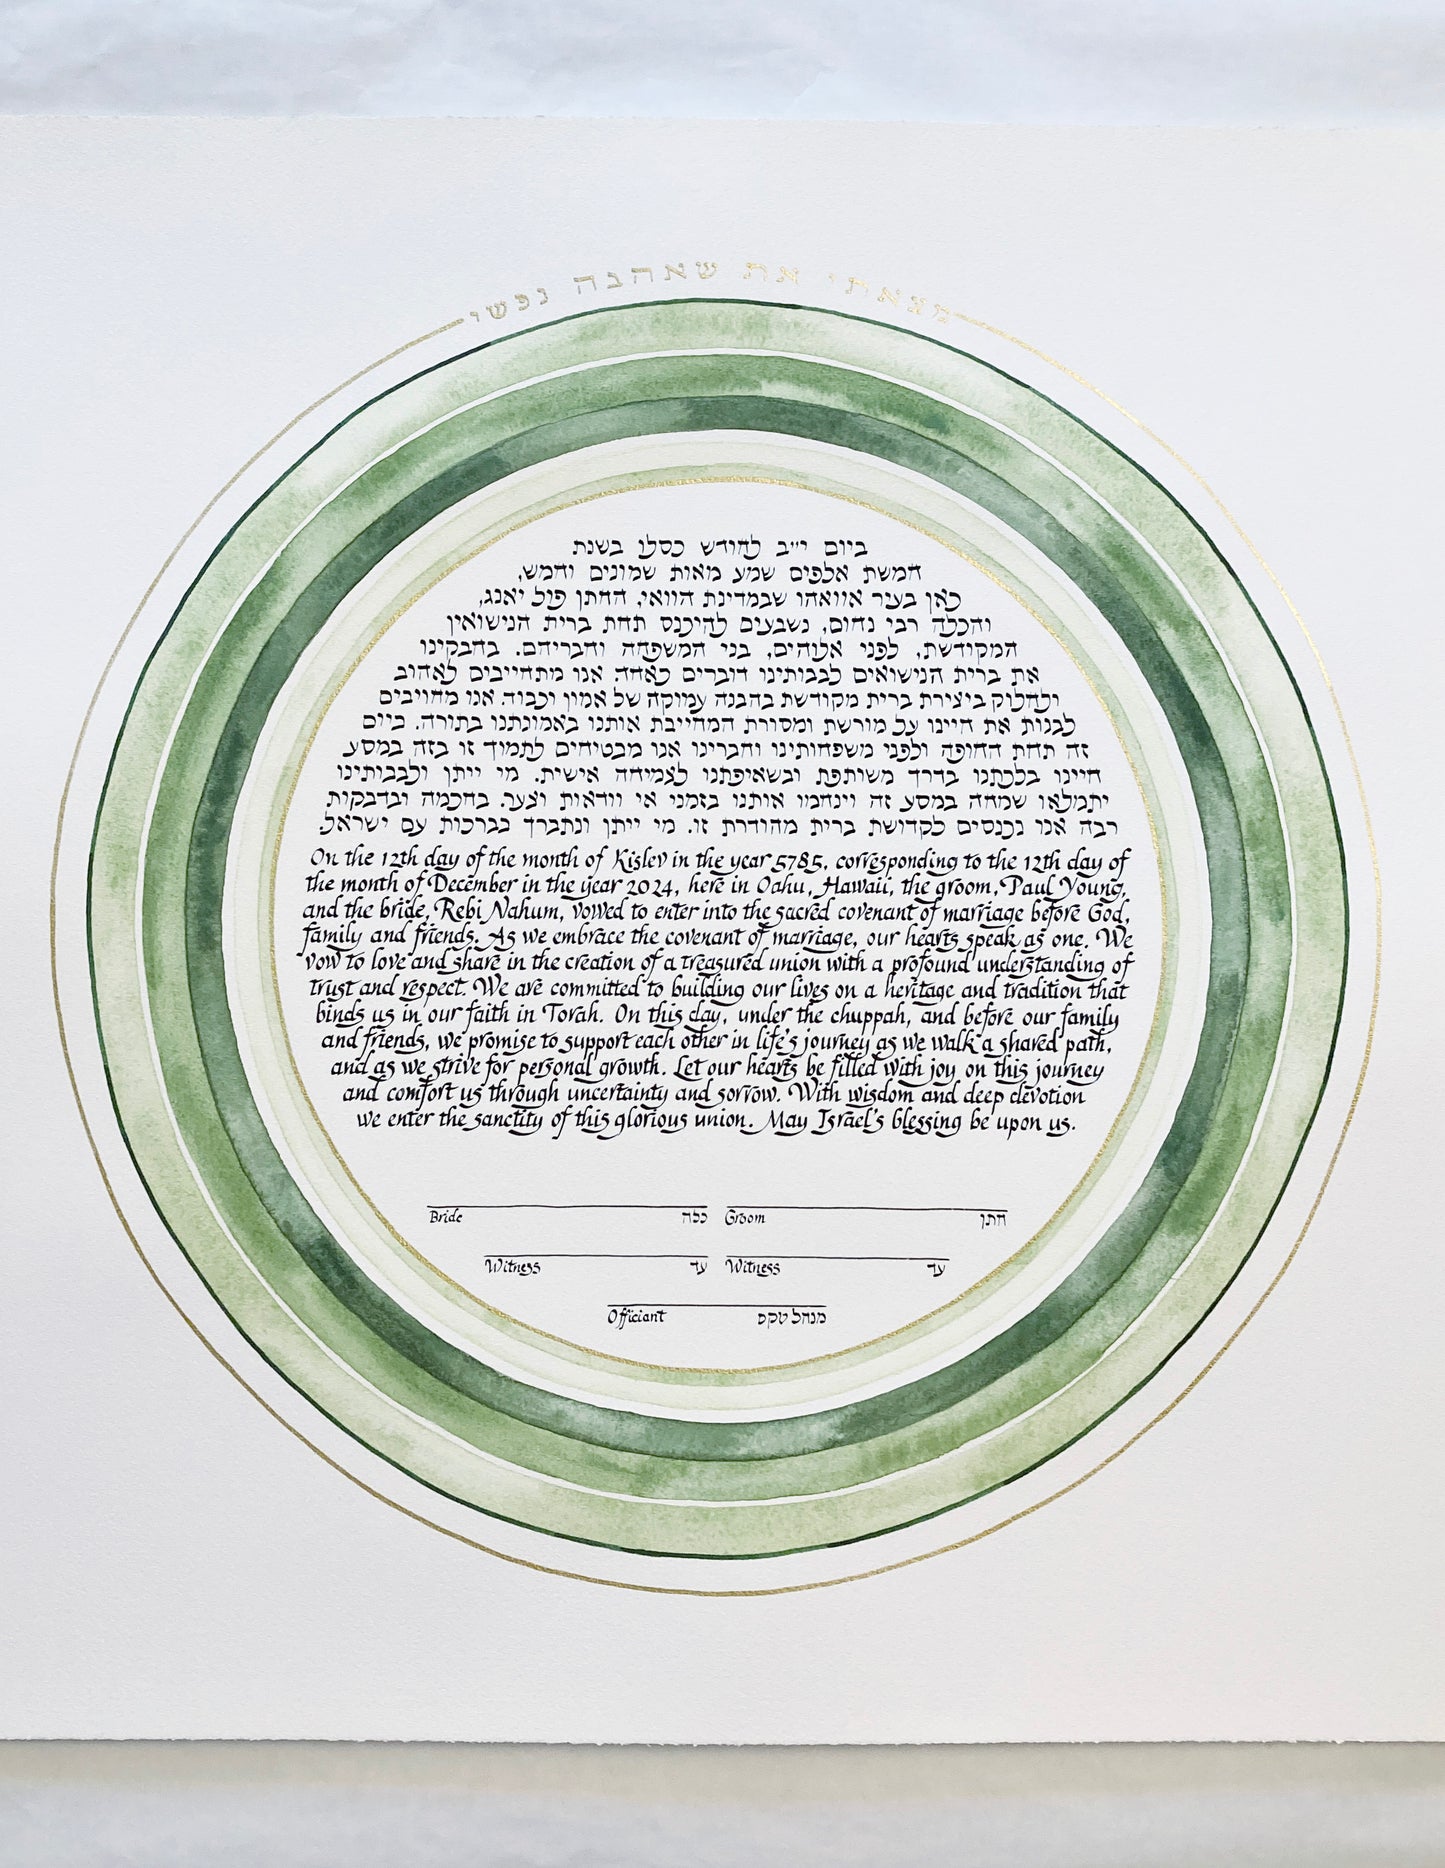 מצאתי את שאהבה נפשי
ביום י״ב לחודש כסלו בשנת
חמשת אלפים שמע מאות שמונים וחמש,
כאן בעיר אוואהו שבמדינת הוואי, החתן פול יאנג,
והכלה רבי נחום, נשבעים להיכנס תחת ברית הנישואין
המקודשת, לפני אלוהים, בני המשפחה וחבריהם. בחבקינו
את ברית הנישואים לבבותינו דוברים כאחד. אנו מתחייבים לאהוב
ולחלוק ביצירת ברית מקודשת בהבנה עמוקה של אמון וכבוד. אנו מחויבים
לבנות את חיינו על מורשת ומסורת המחייבת אותנו באמונתנו בתורה. ביום
זה תחת החופה ולפני משפחותינו וחברינו אנו מבטיחים לתמוך זו בזה במסע
חיינו בלכתנו בדרך משותפת ובשאיפתנו לצמיחה אישית. מי ייתן ולבבותינו
יתמלאו שמחה במסע זה וינחמו אותנו בזמני אי וודאות וצער. בחכמה ובדבקות
רבה אנו נכנסים לקדושת ברית מהודרת זו. מי ייתן ונתברך בברכות עם ישראל.
On the 12th day of the month of Kislev in the year 5785, corresponding to the 12th day of
the month of December in the year 2024, here in Oahu, Hawaii, the groom, Paul Young,
and the bride, Rebi Nahum, vowed to enter into the sacred covenant of marriage before God,
family and friends. As we embrace the covenant of marriage, our hearts speak as one. We
vow to love and share in the creation of a treasured union with a profound understanding of
trust and respect. We are committed to building our lives on a heritage and tradition that
binds us in our faith in Torah. On this day, under the chuppah, and before our family
and friends, we promise to support each other in life's journey as we walk a shared path,
and as we strive for personal growth. Let our hearts be filled with joy on this journey
and comfort us through uncertainty and sorrow. With wisdom and deep devotion
we enter the sanctity of this glorious union. May Israel's blessing be upon us.
Bride כלה Groom חתן
Witness עד Witness עד
Officiant מנהל טקס